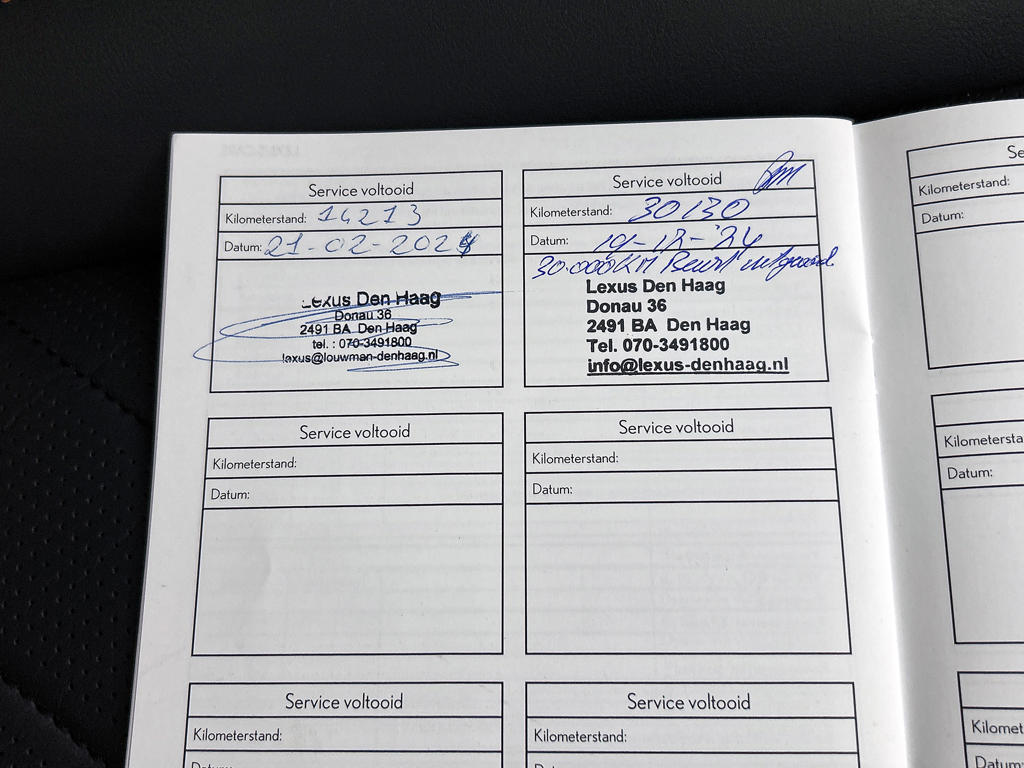 Service voltooid
Kilometerstand: 14213
Datum: 21-02-2024
Lexus Den Haag
Donau 36
2491 BA Den Haag
tel. : 070-3491800
lexus@louwman-denhaag.nl
Service voltooid
Kilometerstand: 30130
Datum: 19-12-'24
30.000KM Beurt uitgevoerd
Lexus Den Haag
Donau 36
2491 BA Den Haag
Tel. 070-3491800
info@lexus-denhaag.nl
Service voltooid
Kilometerstand:
Datum:
Service voltooid
Kilometerstand:
Datum:
Service voltooid
Kilometerstand:
Datum:
Service voltooid
Kilometerstand:
Datum:
Se
Kilometerstand:
Datum:
Kilometersta
Datum:
Kilomet
Datum: